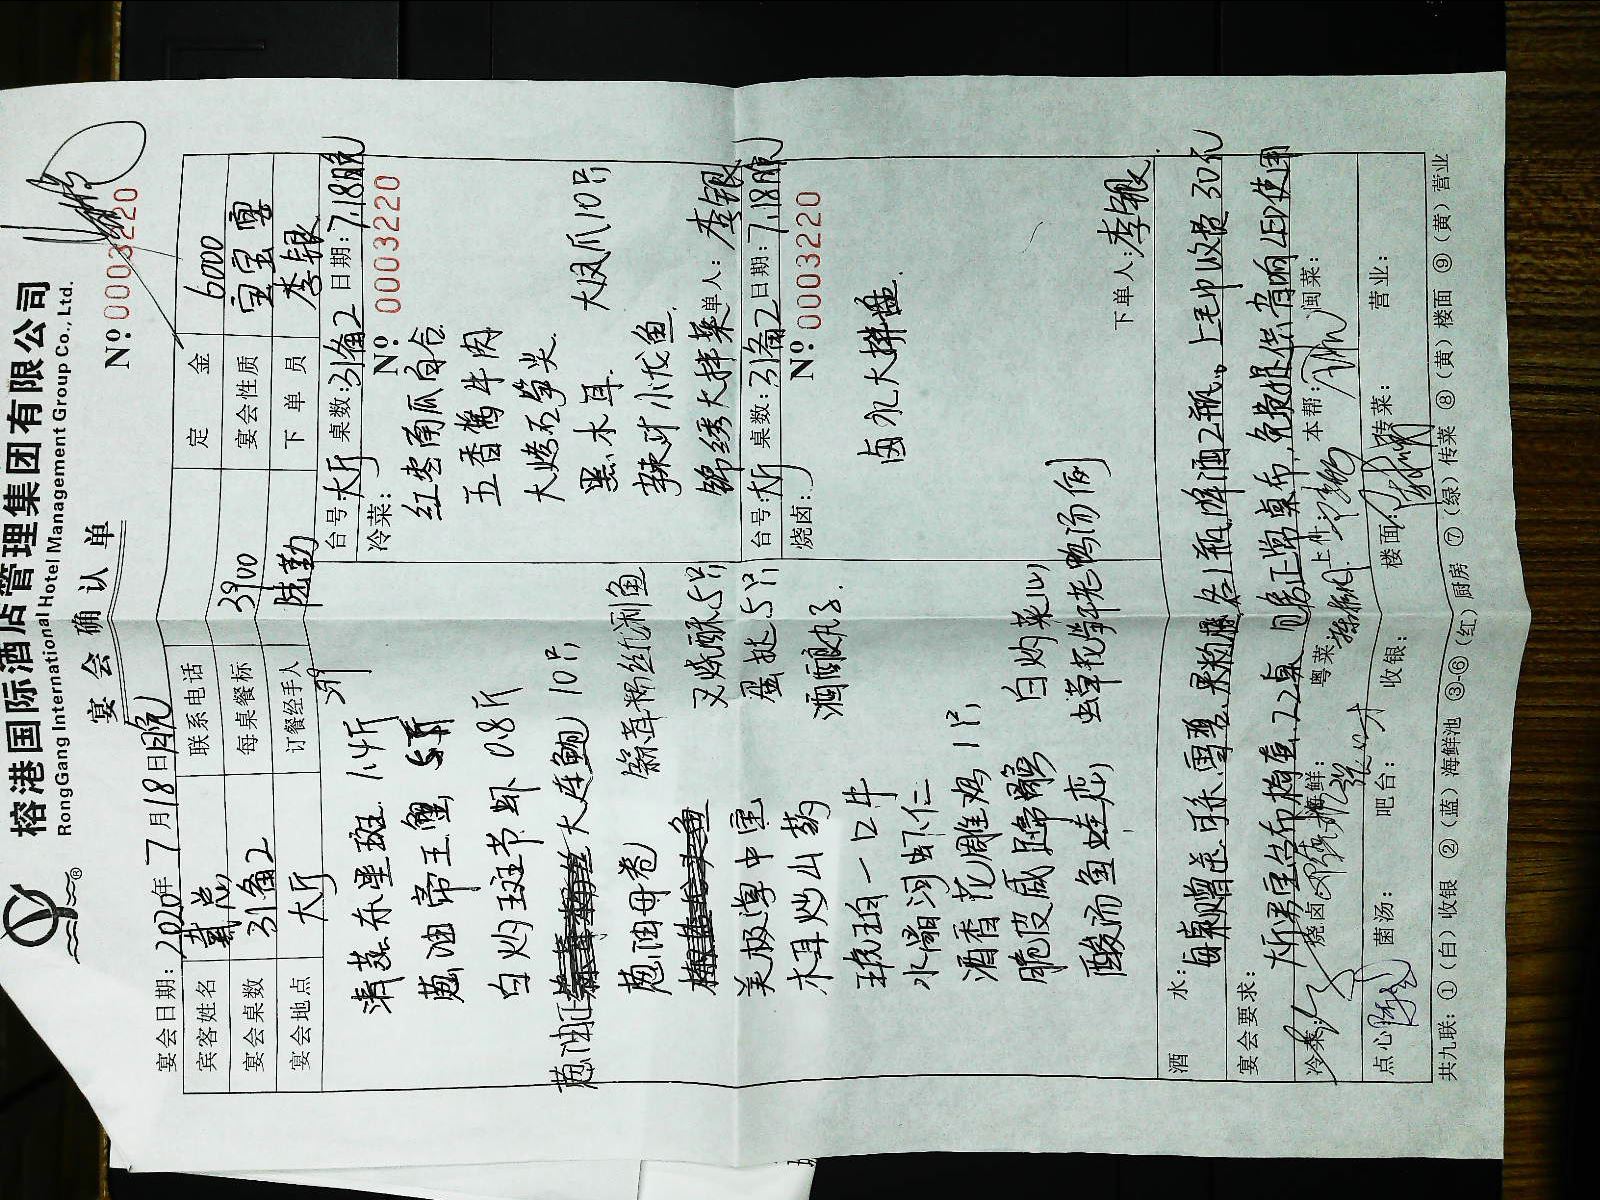 榕港国际酒店管理集团有限公司
RongGang International Hotel Management Group Co., Ltd.
宴会确认单
№ 0003220
宴会日期：2020年 7月18日晚
宾客姓名 戴总 联系电话 定金 6000
宴会桌数 31备2 每桌餐标 3900 宴会性质 宝宝宴
宴会地点 大厅 订餐经手人 陆勤 下单员 李银
清蒸东星斑 1.1斤
葱油帝王蟹 5斤
白灼斑节虾 0.8斤
葱油 大连鲍 10只
葱油母卷
美极潭中宝
木耳炒山药
一口牛
水晶河虾仁
酒香花雕鸡 1只
脆皮咸蹄髈
酸汤鱼蛙恋
蒜茸粉丝 鱼
叉烧酥5只
蛋挞5只
酒酿丸子
白灼菜心
虫草花笋干老鸭汤例
台号：大厅 桌数：31备2 日期：7.18晚
冷菜： № 0003220
红枣南瓜百合
五香酱牛肉
大烤石笋尖
黑木耳
辣汁小龙鱼
锦绣大拌菜
大凤爪10只
单人：李银
台号：大厅 桌数：31备2 日期：7.18晚
烧卤： № 0003220
卤水大拼盘
下单人：李银
酒水： 每桌赠送可乐.雪碧.果粒橙各1瓶,啤酒2瓶, 上毛巾收费30元
宴会要求： 大厅男宝台布椅套,22桌 正常桌布,免费提供音响LED使用
冷菜： 烧卤： 海鲜： 粤菜： 上什： 本帮： 闽菜：
点心： 菌汤： 吧台： 收银： 楼面： 传菜： 营业：
共九联：①（白）收银 ②（蓝）海鲜池 ③-⑥（红）厨房 ⑦（绿）传菜 ⑧（黄）楼面 ⑨（黄）营业